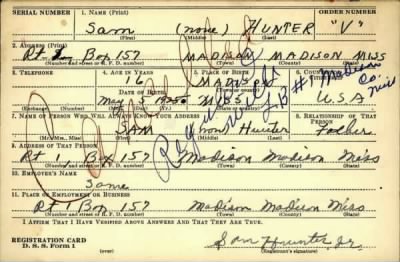 SERIAL NUMBER 1. NAME (Print) ORDER NUMBER
SAM (none) HUNTER "V"
(First) (Middle) (Last)
2. ADDRESS (Print)
Rt 1 Box 157 MADISON MADISON MISS
(Number and street or R. F. D. number) (Town) (County) (State)
3. TELEPHONE 4. AGE IN YEARS 5. PLACE OF BIRTH 6. COUNTRY OF
16 MADISON
DATE OF BIRTH
MAY 5 MISS U.S.A
(Exchange) (Number) (Mo.) (Day) (Yr.) (State or country)
Registered with LB #1 Madison Co. Miss
7. NAME OF PERSON WHO WILL ALWAYS KNOW YOUR ADDRESS 8. RELATIONSHIP OF THAT PERSON
SAM (none) Hunter Father
(Mr., Mrs., Miss) (First) (Middle) (Last)
9. ADDRESS OF THAT PERSON
Rt 1, Box 157 Madison Madison Miss
(Number and street or R. F. D. number) (Town) (County) (State)
10. EMPLOYER'S NAME
Same
11. PLACE OF EMPLOYMENT OR BUSINESS
Rt 1 Box 157 Madison Madison Miss
(Number and street or R. F. D. number) (Town) (County) (State)
I AFFIRM THAT I HAVE VERIFIED ABOVE ANSWERS AND THAT THEY ARE TRUE.
REGISTRATION CARD
D. S. S. Form 1
Sam Hunter Jr.